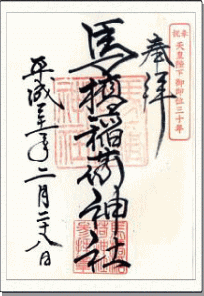 奉祝
天皇陛下御即位三十年
奉拝
馬橋稲荷神社
平成三十一年二月二十八日